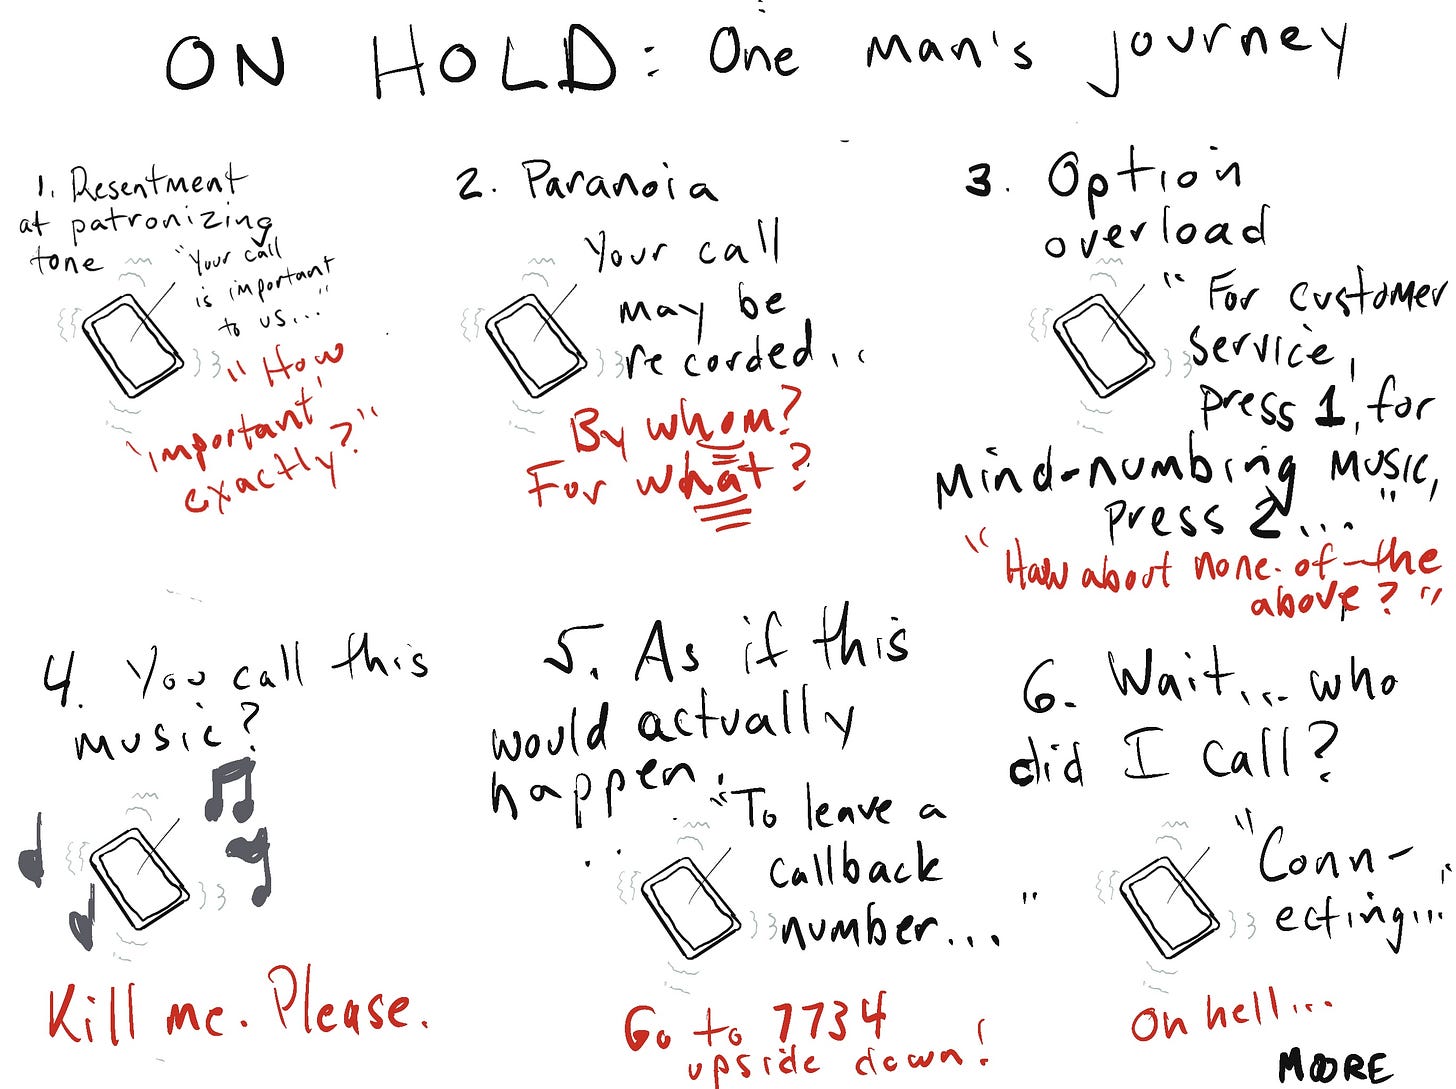 ON HOLD: One man's journey
1. Resentment
at patronizing
tone
"Your call
is important
to us..."
"How
'important'
exactly?"
2. Paranoia
Your call
may be
recorded...
By whom?
For what?
3. Option
overload
"For customer
service,
press 1, for
mind-numbing music,
press 2..."
"How about none-of-the
above?"
4. You call this
music?
Kill me. Please.
5. As if this
would actually
happen.
"To leave a
callback
number..."
Go to 7734
upside down!
6. Wait... who
did I call?
"Conn-
ecting..."
Oh hell...
MOORE